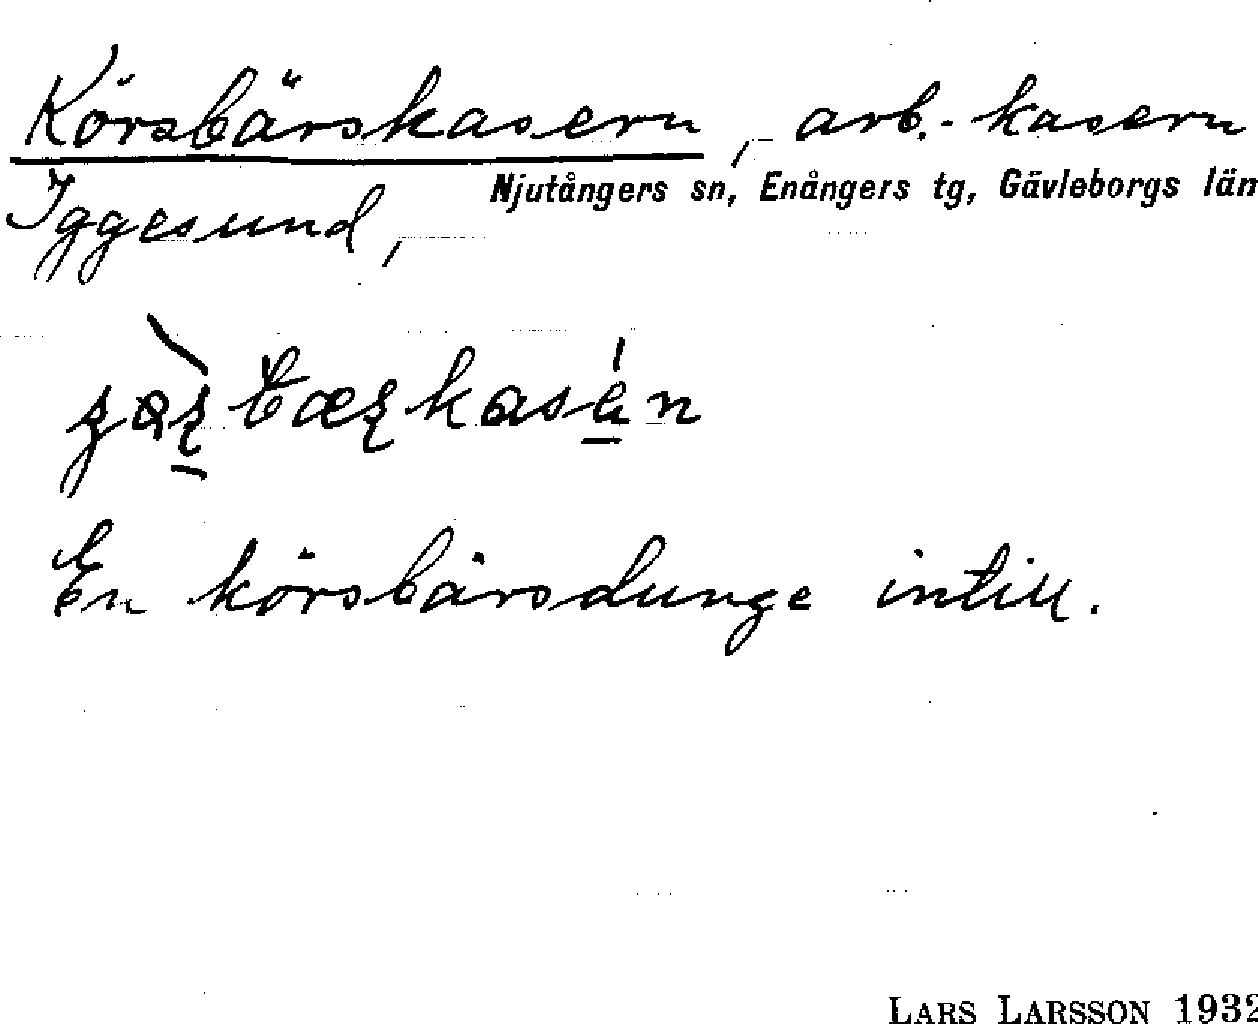 Körsbärskasern, arb.-kasern
Njutångers sn, Enångers tg, Gävleborgs län
Iggesund,
En körsbärsdunge intill.
LARS LARSSON 1932